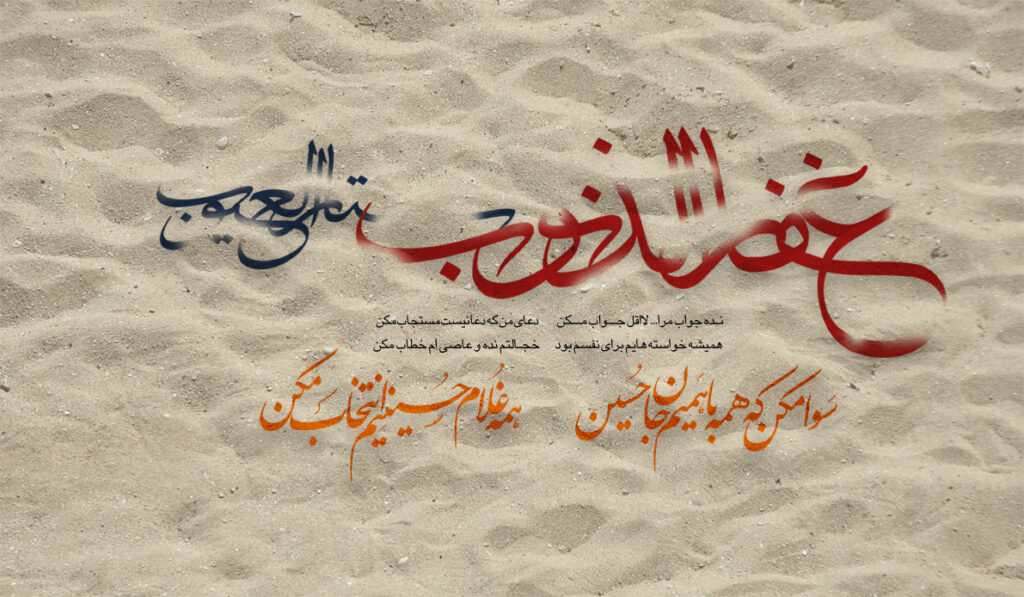 غفار الذنوب ستار العیوب
نده جواب مرا... لااقل جـــواب مـــکن    دعای من که دعا نیست مستجاب مکن
همیشه خواسته هایم برای نفسم بود    خجـالتم نده و عاصی ام خطاب مکن
سَوا مکن که همه با هَمیم جانِ حُسین    همه غُلام حسینیم انتخاب مکن